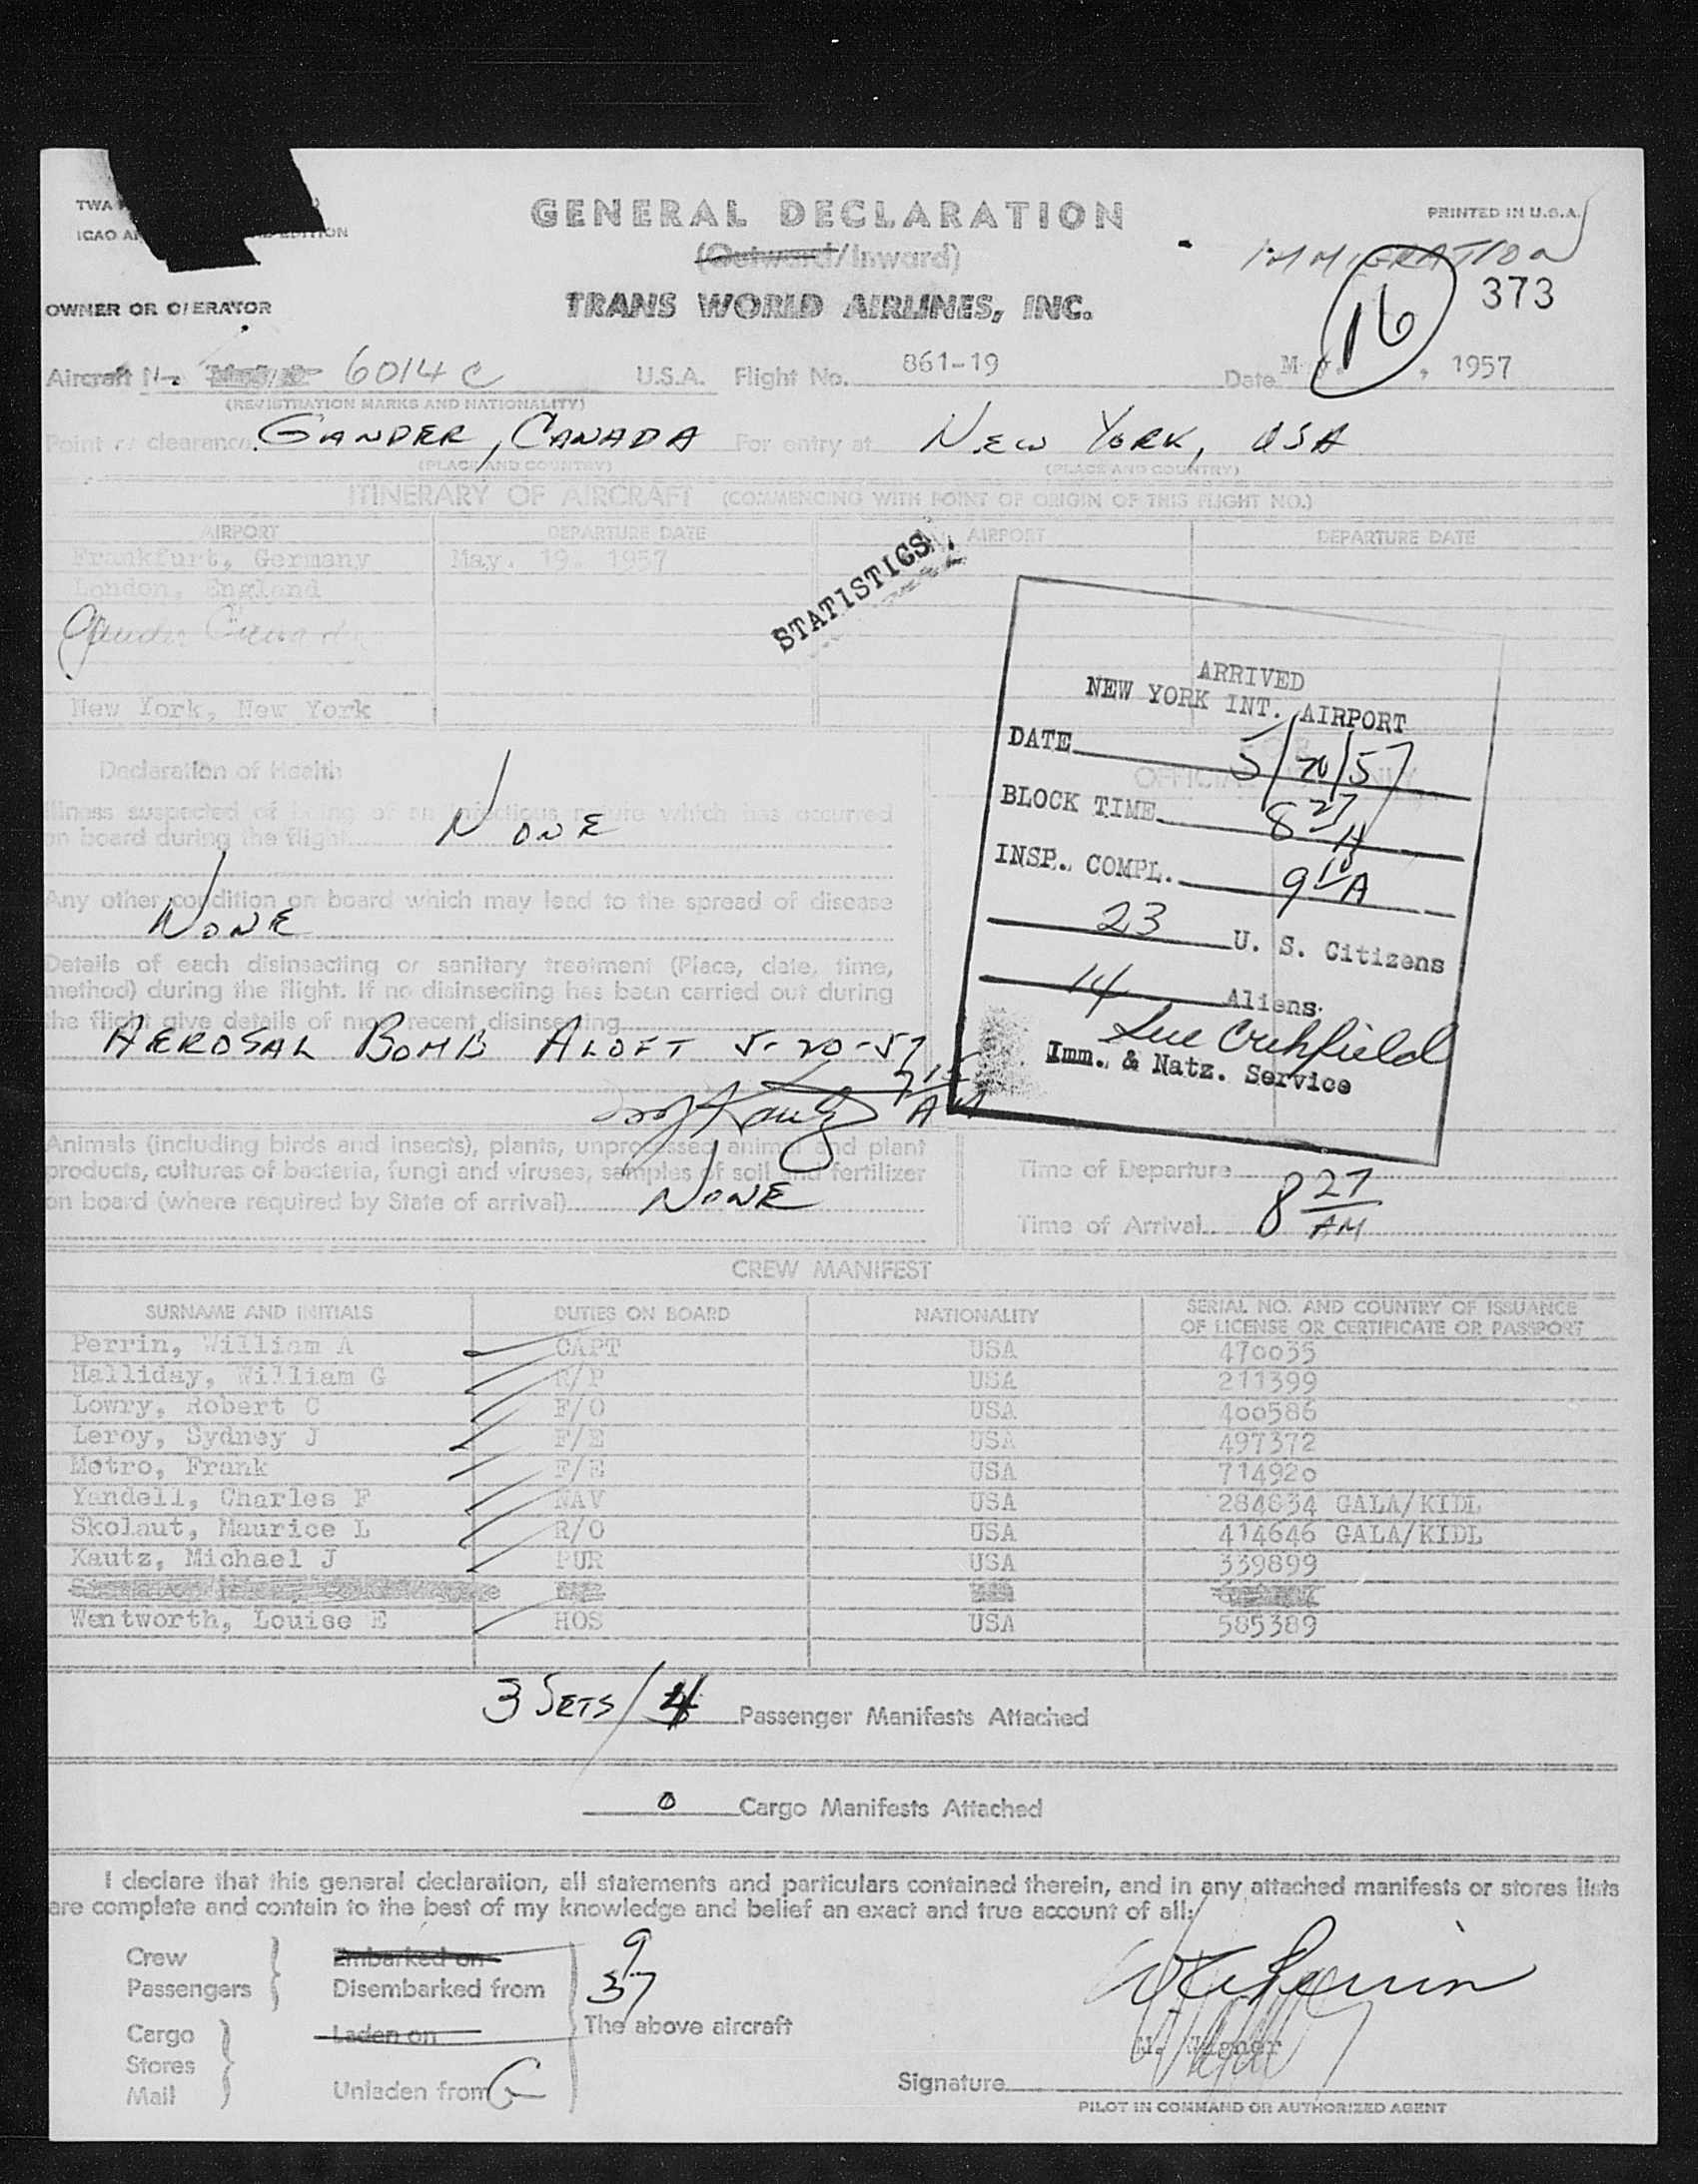 TWA
ICAO
EDITION
GENERAL DECLARATION
(Outward/Inward)
PRINTED IN U.S.A.
IMMIGRATION
16
373
OWNER OR OPERATOR
TRANS WORLD AIRLINES, INC.
Aircraft 6014 C U.S.A. Flight No. 861-19 Date May , 1957
(REGISTRATION MARKS AND NATIONALITY)
Point of clearance GANDER, CANADA For entry at NEW YORK, USA
(PLACE AND COUNTRY) (PLACE AND COUNTRY)
ITINERARY OF AIRCRAFT (COMMENCING WITH POINT OF ORIGIN OF THIS FLIGHT NO.)
AIRPORT DEPARTURE DATE AIRPORT DEPARTURE DATE
Frankfurt, Germany May. 19. 1957
London, England
Gander Canada
New York, New York
STATISTICS
ARRIVED
NEW YORK INT. AIRPORT
DATE 5/20/57
BLOCK TIME 8 27 A
INSP. COMPL. 9 10 A
23 U. S. Citizens
14 Aliens
Imm. & Natz. Service
FOR
OFFICIAL USE ONLY
Declaration of Health
Illness suspected of being of an infectious nature which has occurred
on board during the flight NONE
Any other condition on board which may lead to the spread of disease
NONE
Details of each disinsecting or sanitary treatment (Place, date, time,
method) during the flight. If no disinsecting has been carried out during
the flight give details of most recent disinsecting
AEROSAL BOMB ALOFT 5-20-57
7 15 AM
Animals (including birds and insects), plants, unprocessed animal and plant
products, cultures of bacteria, fungi and viruses, samples of soil and fertilizer
on board (where required by State of arrival) NONE
Time of Departure
Time of Arrival 8 27 AM
CREW MANIFEST
SURNAME AND INITIALS DUTIES ON BOARD NATIONALITY SERIAL NO. AND COUNTRY OF ISSUANCE
OF LICENSE OR CERTIFICATE OR PASSPORT
Perrin, William A CAPT USA 470035
Halliday, William G R/P USA 211399
Lowry, Robert C F/O USA 400586
Leroy, Sydney J F/E USA 497372
Metro, Frank F/E USA 714920
Yandell, Charles F NAV USA 284634 GALA/KIDL
Skolaut, Maurice L R/O USA 414646 GALA/KIDL
Kautz, Michael J PUR USA 339899
Wentworth, Louise E HOS USA 585389
3 SETS/4 Passenger Manifests Attached
0 Cargo Manifests Attached
I declare that this general declaration, all statements and particulars contained therein, and in any attached manifests or stores lists
are complete and contain to the best of my knowledge and belief an exact and true account of all:
Crew Embarked on 9
Passengers Disembarked from 37
The above aircraft
Cargo Laden on
Stores
Mail Unladen from
Signature
PILOT IN COMMAND OR AUTHORIZED AGENT